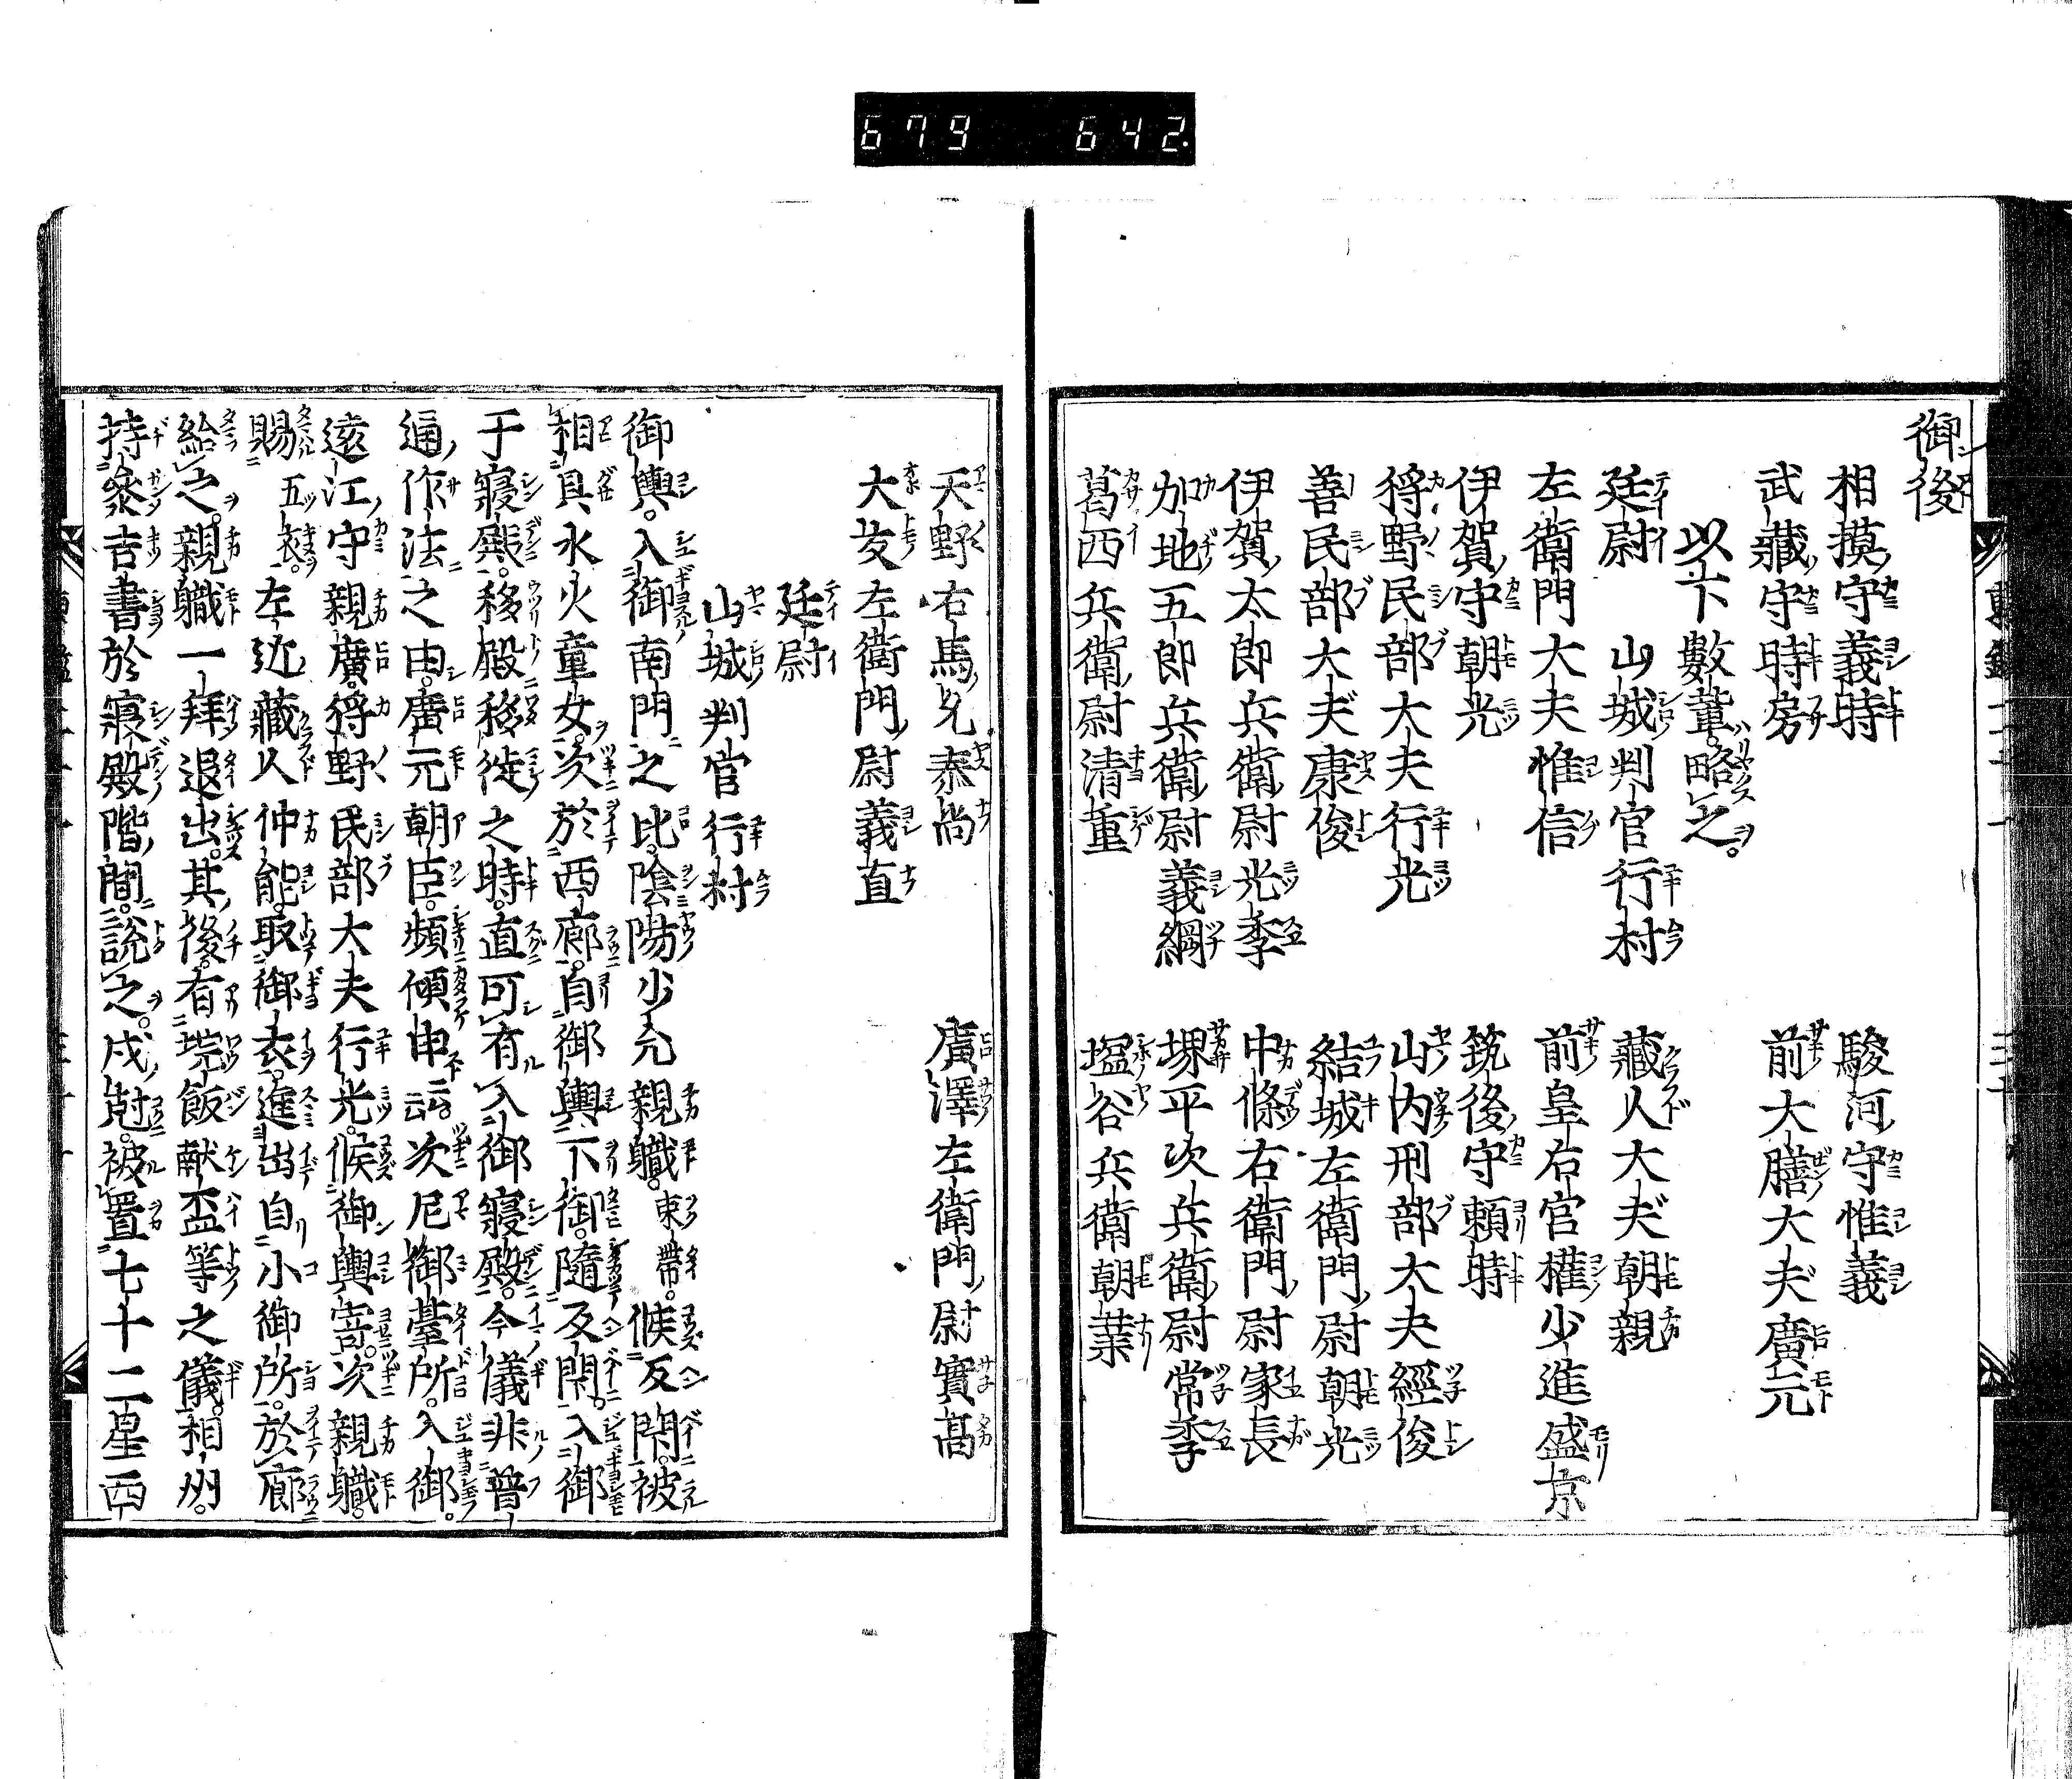 679 642.
御後
相摸守義時 駿河守惟義
武藏守時房 前大膳大夫廣元
以下數輩。略之。
廷尉 山城判官行村 藏人大夫朝親
左衛門大夫惟信 前皇后宮權少進盛京
伊賀守朝光 筑後守頼時
狩野民部大夫行光 山内刑部大夫經俊
善民部大夫康俊 結城左衛門尉朝光
伊賀太郎兵衛尉光季 中條右衛門尉家長
加地五郎兵衛尉義綱 堺平次兵衛尉常季
葛西兵衛尉清重 塩谷兵衛朝業
天野右馬允泰尚 廣澤左衛門尉實髙
大友左衛門尉義直
廷尉
山城判官行村
御輿。入御南門之比。陰陽少允親職。束帶。候反閇。被
相具水火童女。次於西廊。自御輿下御。隨反閇。入御
于寢殿。移殿移徙之時。直可有入御寢殿。今儀非普
通作法之由。廣元朝臣。頻傾申云云。次尼御臺所。入御。
遠江守親廣。狩野民部大夫行光。候御輿寄。次親職。
賜五衣。左近藏人仲能。取御衣。進出自小御所。於廊
給之。親職一拜退出。其後。有垸飯献盃等之儀。相州。
持參吉書於寢殿階間。說之。戍尅。被置七十二星西